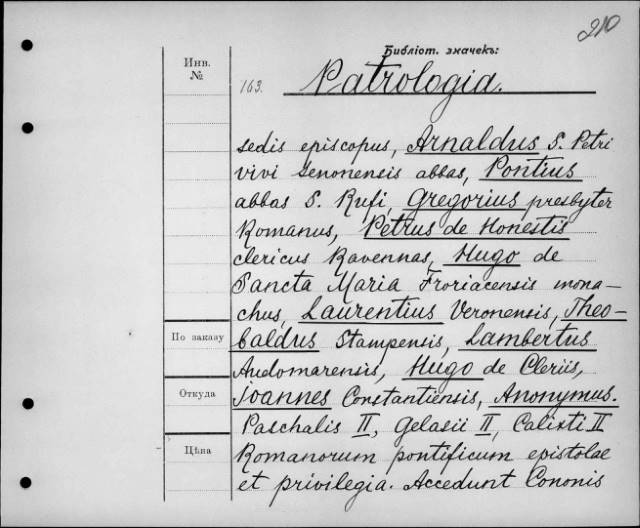 210
Библіот. значекъ:
Инв.
№
163.
Patrologia.
sedis episcopus, Arnaldus S. Petri
vivi Senonensis abbas, Pontius
abbas S. Rufi, Gregorius presbyter
Romanus, Petrus de Honestis
clericus Ravennas, Hugo de
Sancta Maria Froriacensis mona-
chus, Laurentius Veronensis, Theo-
baldus Stampensis, Lambertus
Audomarensis, Hugo de Cleriis,
Joannes Constantiensis, Anonymus.
Paschalis II, Gelasii II, Calixti II
Romanorum pontificum epistolae
et privilegia. Accedunt Cononis
По заказу
Откуда
Цѣна